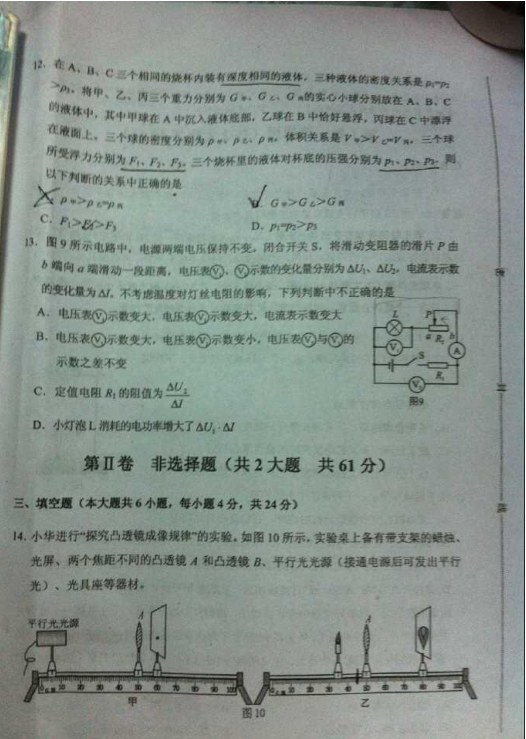 12. 在 A、B、C 三个相同的烧杯内装有深度相同的液体，三种液体的密度关系是 ρ₁=ρ₂
>ρ₃，将甲、乙、丙三个重力分别为 G甲、G乙、G丙的实心小球分别放在 A、B、C
的液体中，其中甲球在 A 中沉入液体底部，乙球在 B 中恰好悬浮，丙球在 C 中漂浮
在液面上。三个球的密度分别为 ρ甲、ρ乙、ρ丙，体积关系是 V甲>V乙=V丙，三个球
所受浮力分别为 F₁、F₂、F₃，三个烧杯里的液体对杯底的压强分别为 p₁、p₂、p₃，则
以下判断的关系中正确的是
A. ρ甲>ρ乙=ρ丙 B. G甲>G乙>G丙
C. F₁>F₂>F₃ D. p₁=p₂>p₃
13. 图 9 所示电路中，电源两端电压保持不变。闭合开关 S，将滑动变阻器的滑片 P 由
b 端向 a 端滑动一段距离，电压表V₁、V₂示数的变化量分别为 ΔU₁、ΔU₂，电流表示数
的变化量为 ΔI。不考虑温度对灯丝电阻的影响，下列判断中不正确的是
A. 电压表V₁示数变大，电压表V₂示数变大，电流表示数变大
B. 电压表V₁示数变大，电压表V₂示数变小，电压表V₁与V₂的
示数之差不变
C. 定值电阻 R₁ 的阻值为 ΔU₂/ΔI
D. 小灯泡 L 消耗的电功率增大了 ΔU₁·ΔI
L P a R₂ b V₁ A S R₁ V₂
图9
第Ⅱ卷 非选择题（共 2 大题 共 61 分）
三、填空题（本大题共 6 小题，每小题 4 分，共 24 分）
14. 小华进行“探究凸透镜成像规律”的实验。如图 10 所示，实验桌上备有带支架的蜡烛、
光屏、两个焦距不同的凸透镜 A 和凸透镜 B、平行光光源（接通电源后可发出平行
光）、光具座等器材。
平行光光源 A A
甲 乙
图 10